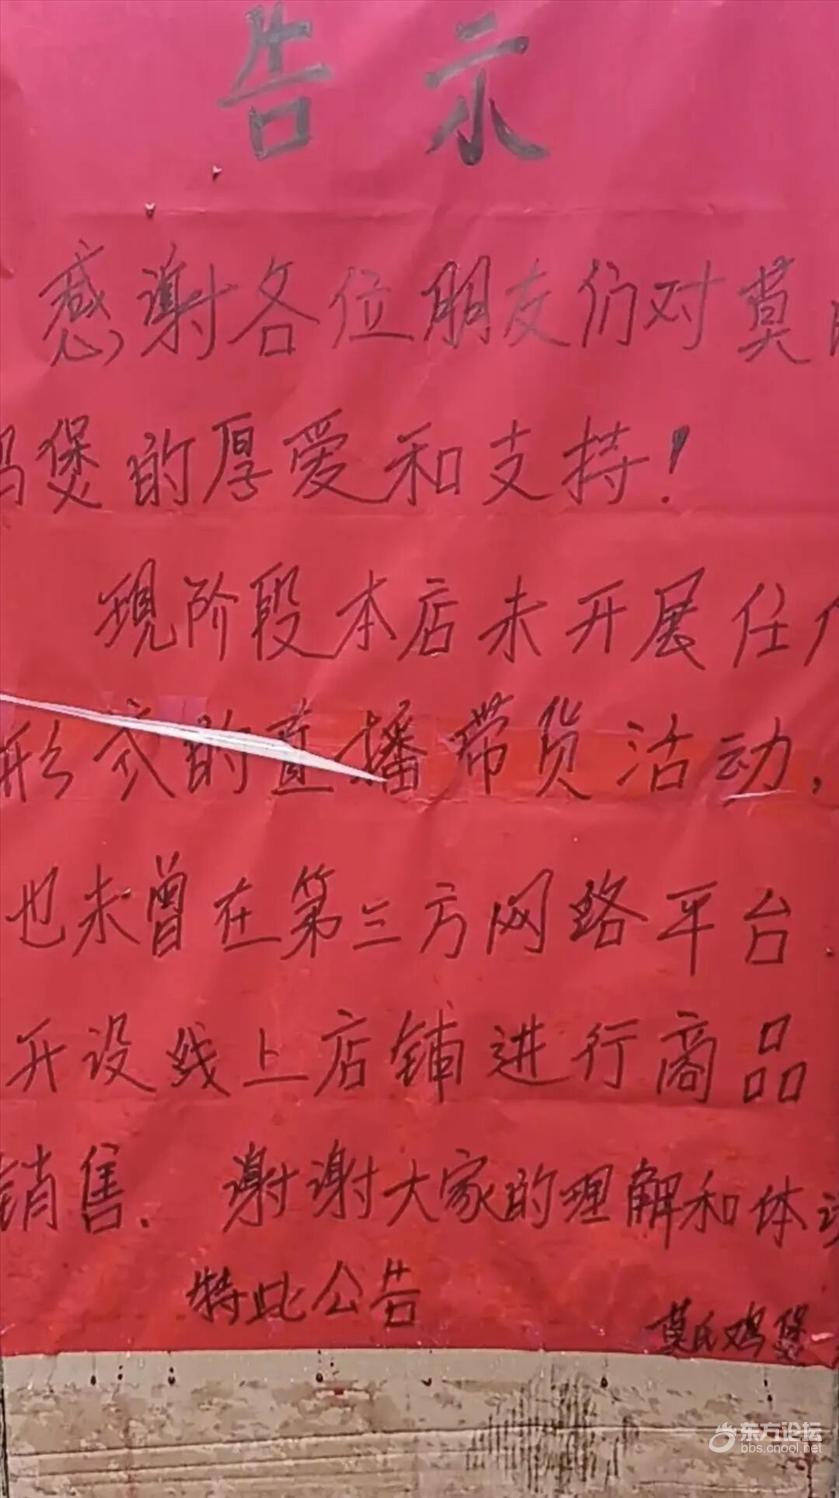 告示
感谢各位朋友们对莫
鸡煲的厚爱和支持！
现阶段本店未开展任
形式的直播带货活动，
也未曾在第三方网络平台
开设线上店铺进行商品
销售. 谢谢大家的理解和体
特此公告
莫氏鸡煲
东方论坛
bbs.cnool.net